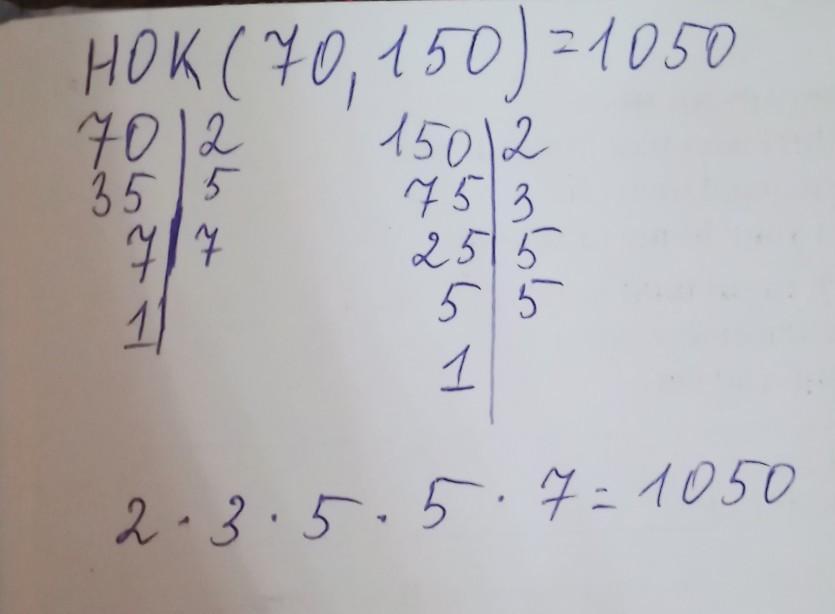 НОК(70,150)=1050
70|2 150|2
35|5 75|3
7|7 25|5
1| 5|5
1|
2·3·5·5·7=1050